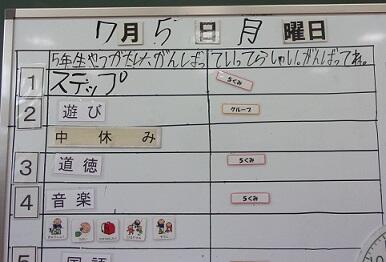 7月5日月曜日
5年生やつがたけがんばっていってらっしゃい。がんばってね。
1 ステップ 5くみ
2 遊び グループ
中休み
3 道徳 5くみ
4 音楽 5くみ
5 国語